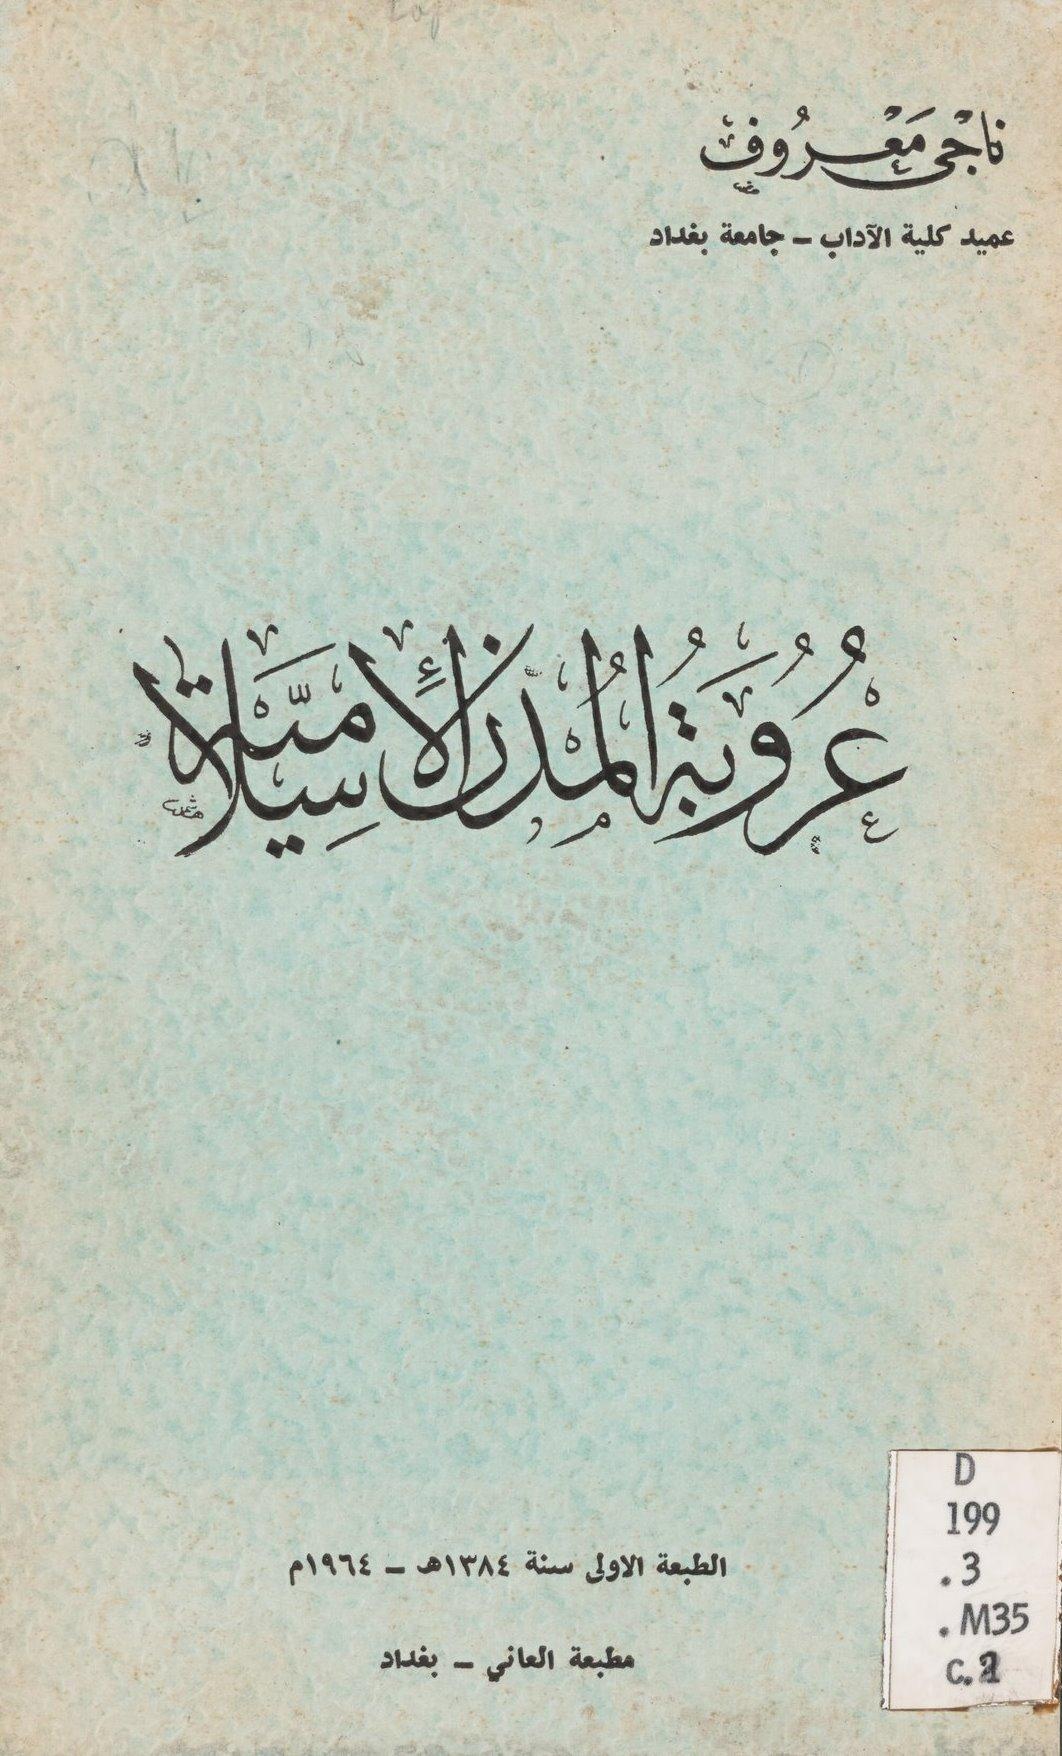 ناجي معروف
عميد كلية الآداب – جامعة بغداد
عُرُوبَةُ المُدُنِ الإِسْلَامِيَّةِ
الطبعة الاولى سنة ١٣٨٤هـ – ١٩٦٤م
مطبعة العاني – بغداد
D
199
.3
.M35